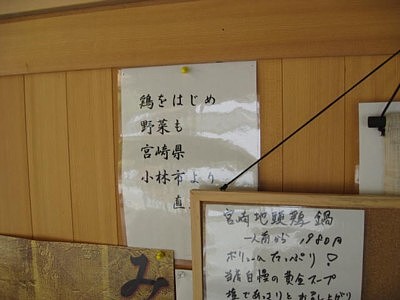 鶏をはじめ
野菜も
宮崎県
小林市より
直
宮崎地頭鶏鍋
一人前から 1980円
ボリュームたっぷり!
当店自慢の黄金スープ
塩であっさりとお召し上がり
み